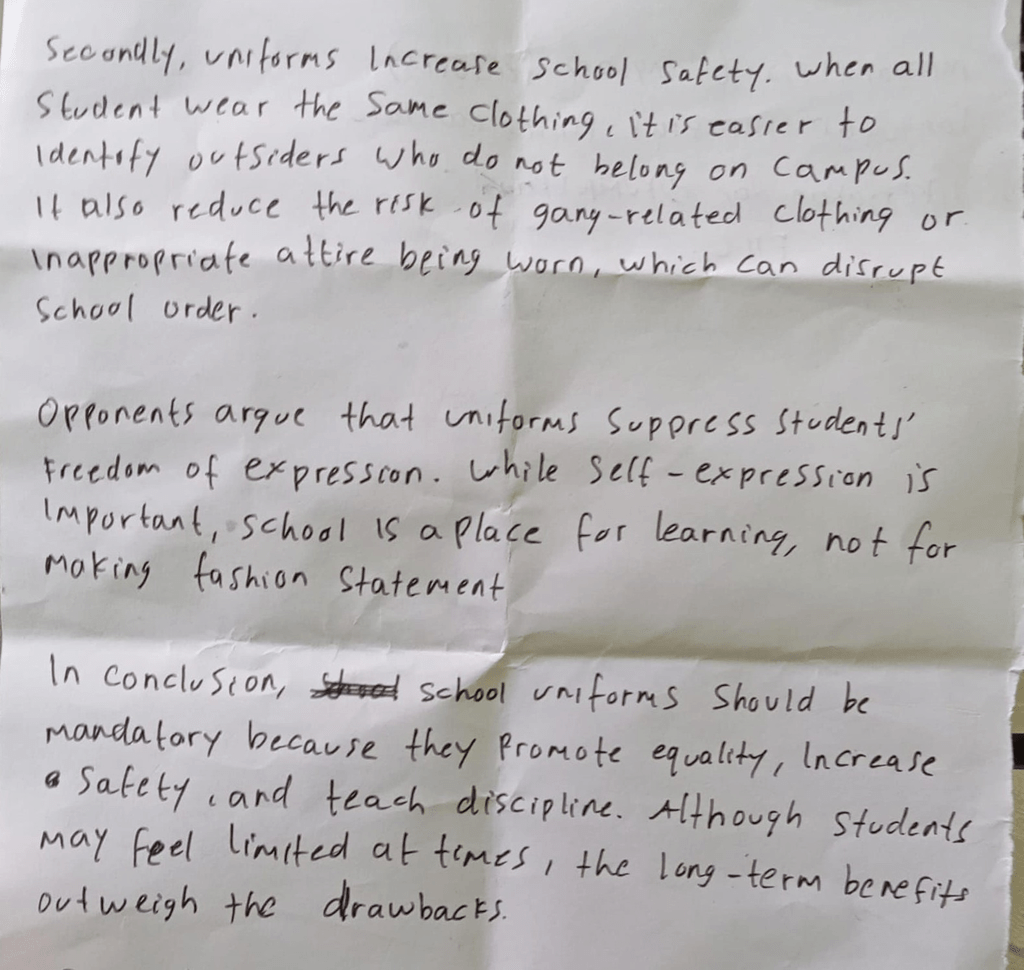 Secondly, uniforms increase school safety. When all
Student wear the same clothing, it is easier to
identify outsiders who do not belong on campus.
It also reduce the risk of gang-related clothing or
inappropriate attire being worn, which can disrupt
school order.
Opponents argue that uniforms suppress students'
freedom of expression. While self-expression is
important, school is a place for learning, not for
making fashion statement
In conclusion, school uniforms should be
mandatory because they promote equality, increase
safety, and teach discipline. Although students
may feel limited at times, the long-term benefits
outweigh the drawbacks.